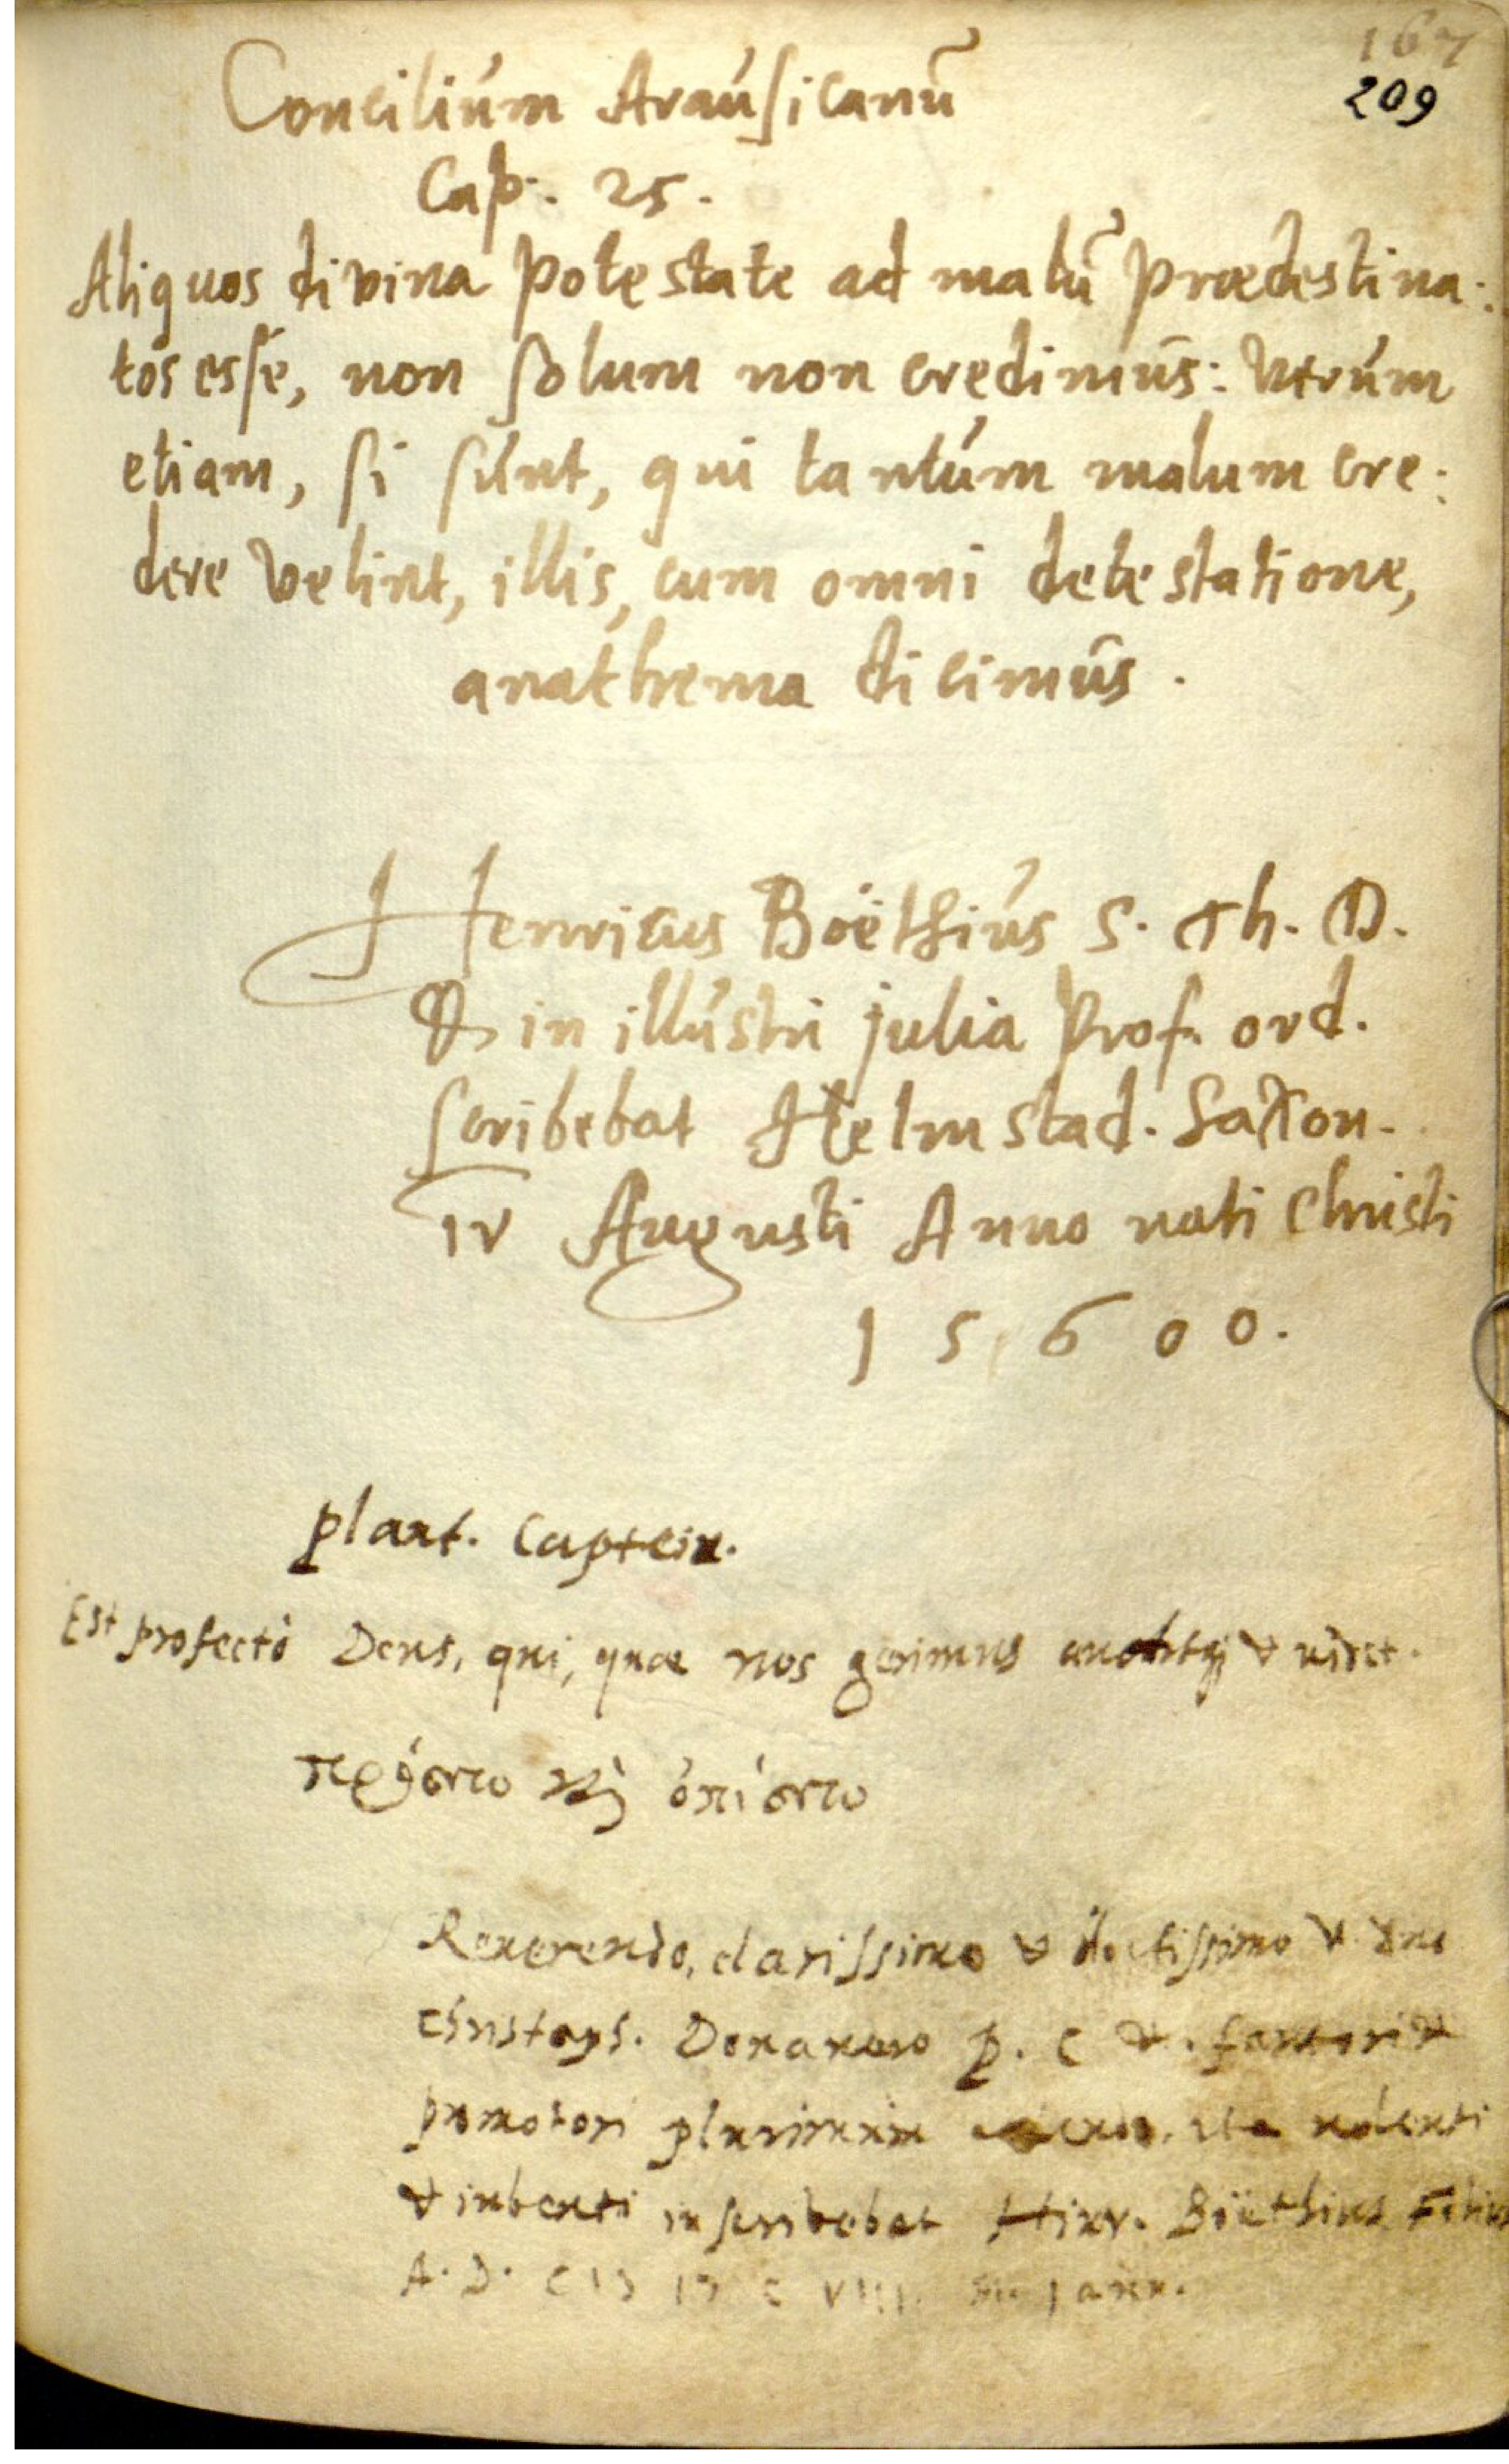 167
209
Concilium Arausicanū
Cap. 25.
Aliquos divina potestate ad malū prædestina:
tos esse, non solum non credimus: Verum
etiam, si sunt, qui tantum malum cre:
dere velint, illis, cum omni detestatione,
anathema dicimus.
Henricus Boëthius S. Th. D.
& in illustri Julia Prof. ord.
scribebat Helmstad. Saxon.
IV Augusti Anno nati Christi
15600.
Plaut. Capteiu.
Est profectò Deus, qui, quæ nos gerimus auditqȝ & videt.
πρόσσω καὶ ὀπίσσω
Reuerendo, clarissimo & doctissimo & dno
Christoph. P. C &. fautori &
promotori plurimum ita uolenti
& iubenti inscribebat Hinr. Böethius Filius
A. D. CIↃ IↃ C VIII. Janu.